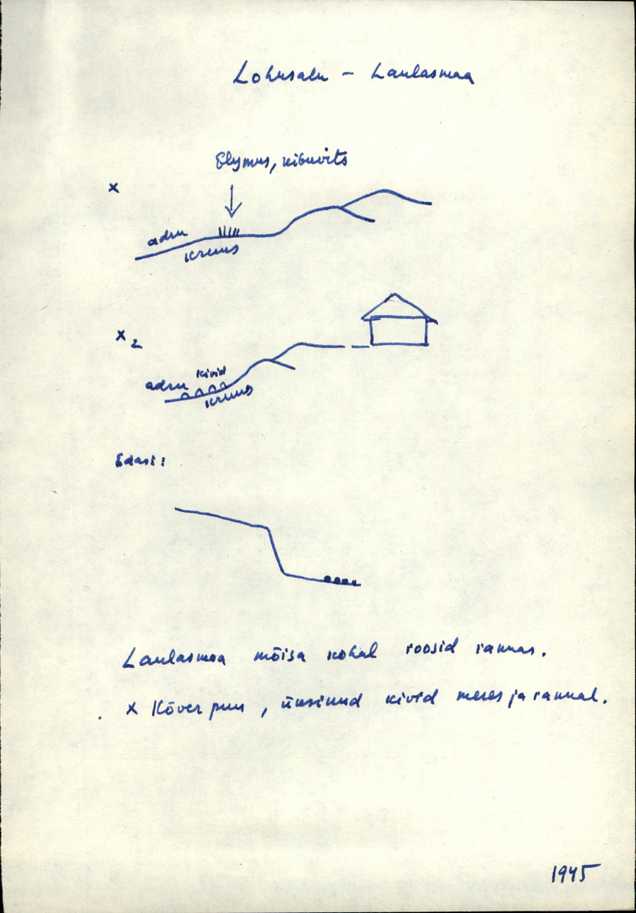 Lohusalu – Laulasmaa
Elymus, kibuvits
x
adru
kruus
x₂
kivid
adru
kruus
Edasi:
Laulasmaa mõisa kohal roosid rannas.
x Kõver puu, üksinud kivid meres ja rannal.
1945